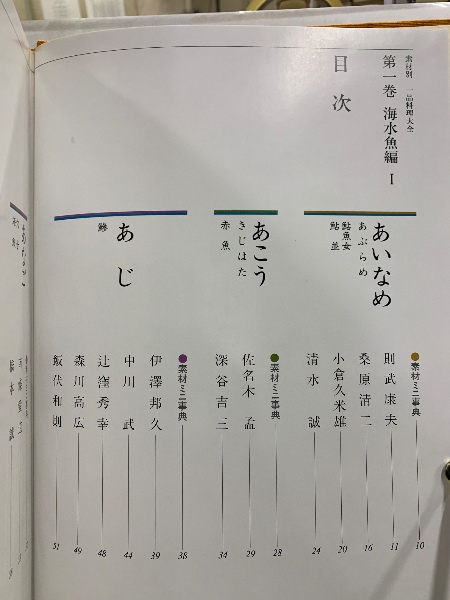 素材別 一品料理大全
第一巻 海水魚編 Ⅰ
目次
あいなめ
あぶらめ
鮎魚女
鮎並
●素材ミニ事典 10
則武康夫 11
桑原清二 16
小倉久米雄 20
清水誠 24
あこう
きじはた
赤魚
●素材ミニ事典 28
佐名木孟 29
深谷吉三 34
あじ
鯵
●素材ミニ事典 38
伊澤邦久 39
中川武 44
辻窪秀幸 48
森川高広 49
飯伏和則 51